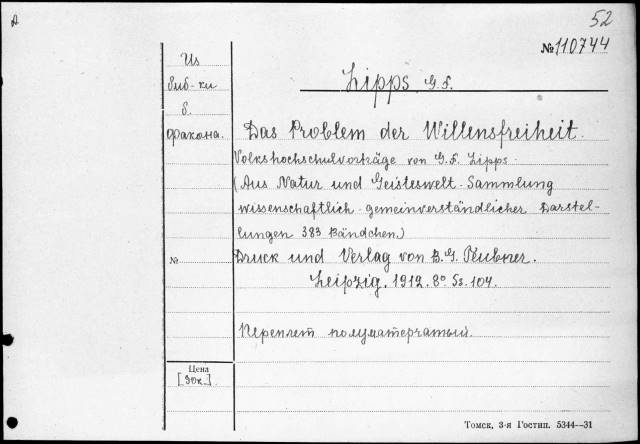 52
№ 110744
Lipps G.F.
Из
биб-ки
б.
факона.
Das Problem der Willensfreiheit.
Volkshochschulvorträge von G.F. Lipps.
(Aus Natur und Geisteswelt. Sammlung
wissenschaftlich-gemeinverständlicher Darstel-
lungen 383 Bändchen.)
№
Druck und Verlag von B.G. Teubner.
Leipzig. 1912. 8º Ss. 104.
Переплет полуматерчатый.
Цена
[30к.]
Томск, 3-я Гостип. 5344—31